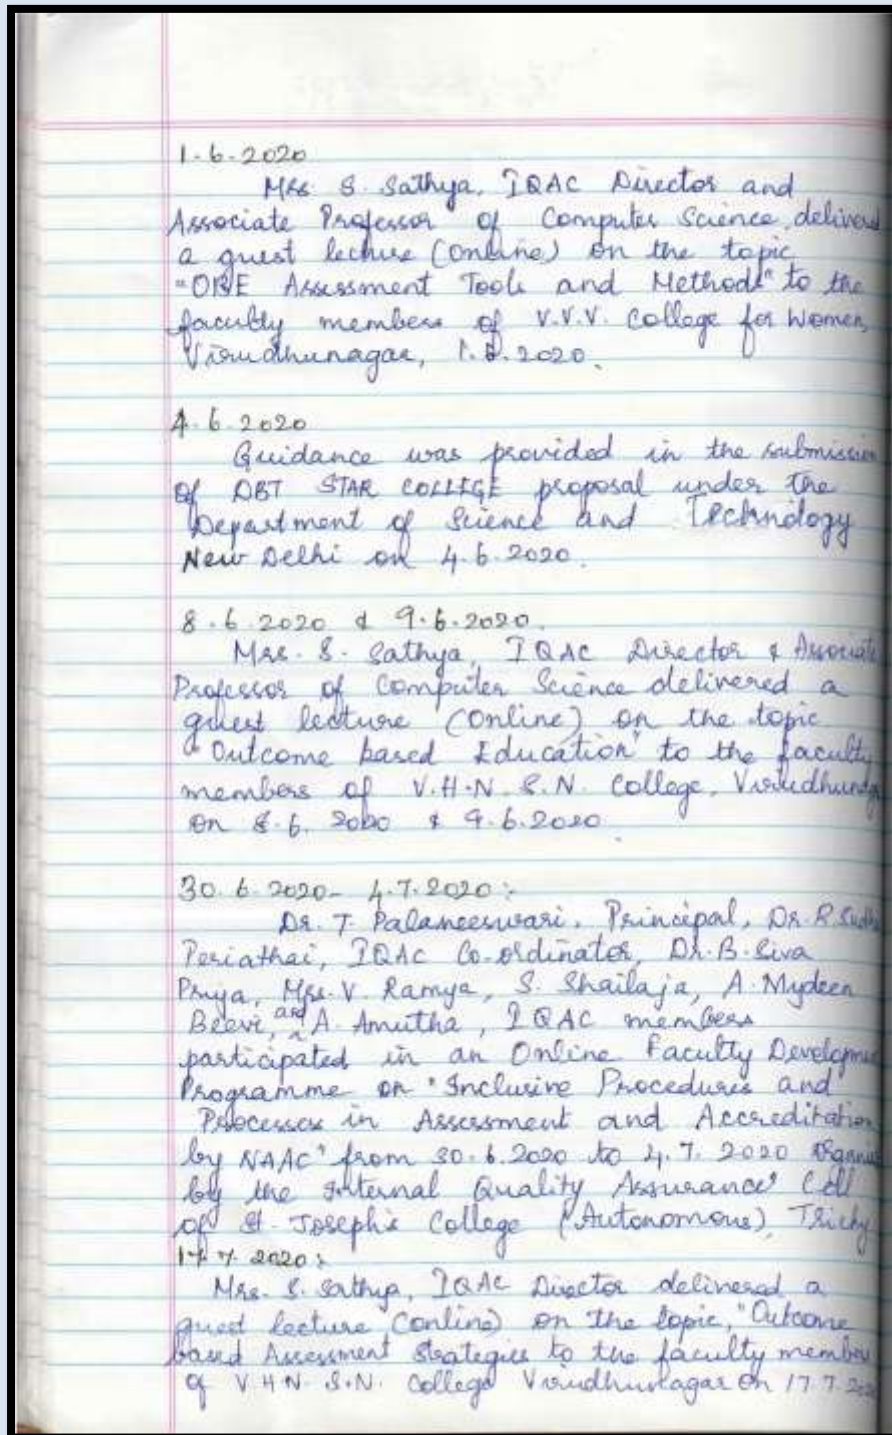 1.6.2020
Mrs. S. Sathya, IQAC Director and
Associate Professor of Computer Science, delivered
a guest lecture (Online) on the topic
"OBE Assessment Tools and Methods" to the
faculty members of V.V.V. College for Women,
Virudhunagar, 1.6.2020.
4.6.2020
Guidance was provided in the submission
of DBT STAR COLLEGE proposal under the
Department of Science and Technology
New Delhi on 4.6.2020.
8.6.2020 & 9.6.2020.
Mrs. S. Sathya, IQAC Director & Associate
Professor of Computer Science delivered a
guest lecture (Online) on the topic
"Outcome based Education" to the faculty
members of V.H.N.S.N. College, Virudhunag
on 8.6.2020 & 9.6.2020.
30.6.2020 - 4.7.2020:
Dr. T. Palaneeswari, Principal, Dr. R. Sudha
Periathai, IQAC Co-ordinator, Dr. B. Siva
Priya, Mrs. V. Ramya, S. Shailaja, A. Mydeen
Beevi, and A. Amutha, IQAC members
participated in an Online Faculty Developme
Programme on "Inclusive Procedures and
Processes in Assessment and Accreditation
by NAAC" from 30.6.2020 to 4.7.2020 Organi
by the Internal Quality Assurance Cell
of St. Joseph's College (Autonomous), Trichy
17.7.2020:
Mrs. S. Sathya, IQAC Director delivered a
guest lecture (Online) on the topic, "Outcome
based Assessment Strategies to the faculty members
of V.H.N.S.N. College Virudhunagar on 17.7.202